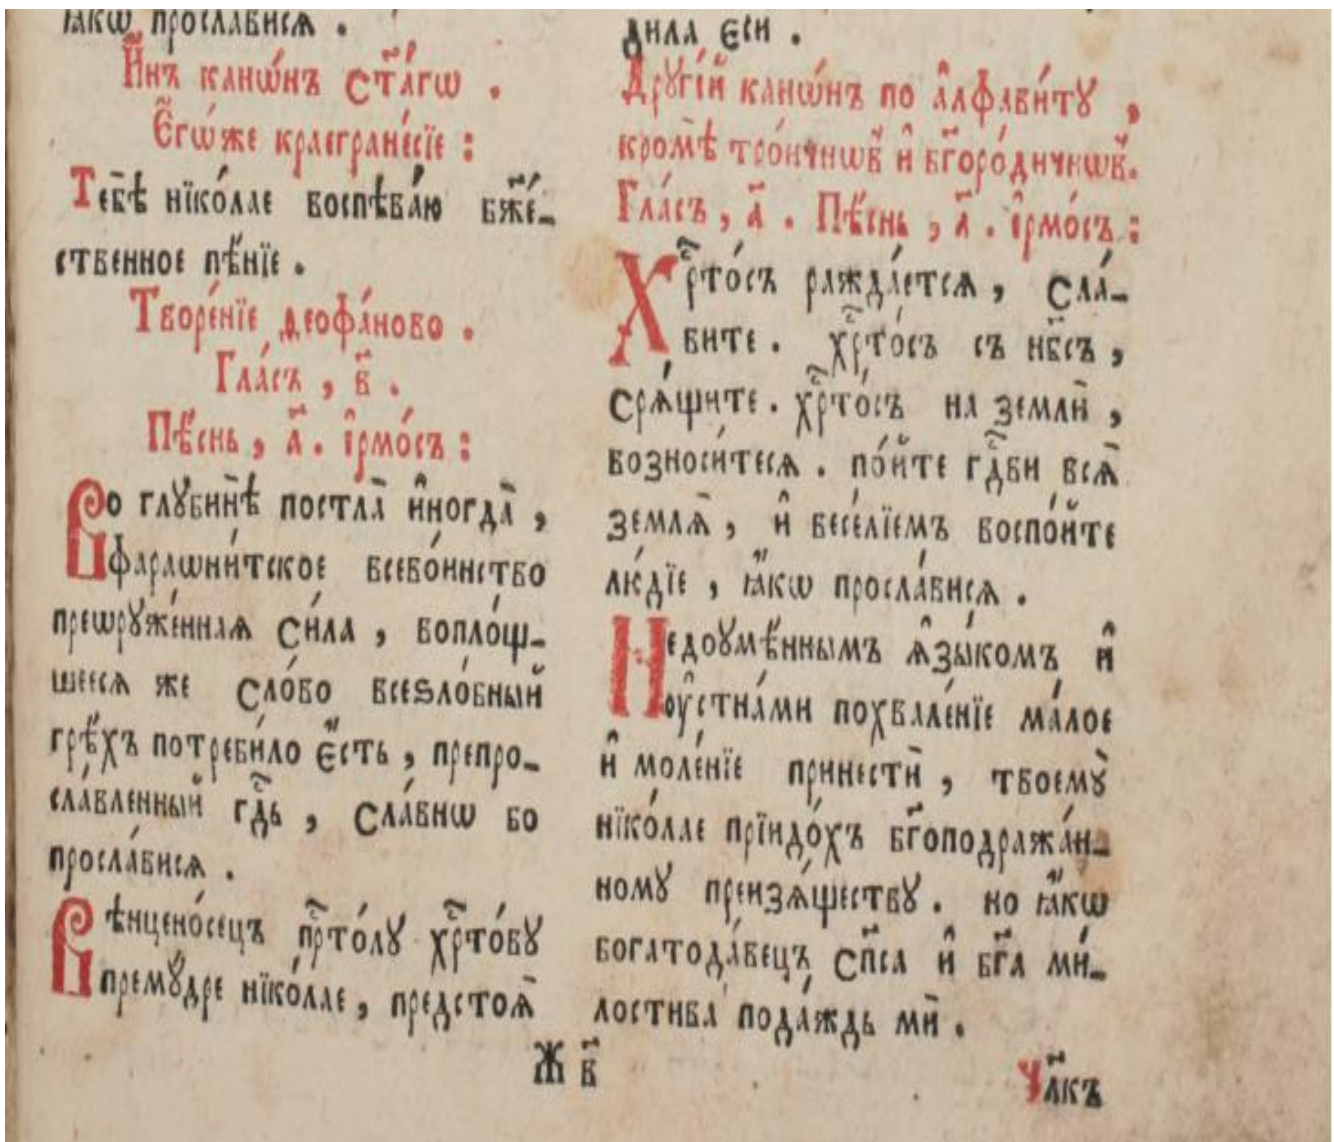 ꙗ҆́кѡ просла́висѧ .
И҆́нъ канѡ́нъ ст҃а́гѡ .
Е҆гѡ́же краегране́сїе :
Тебѣ̀ нїко́лае воспѣва́ю бж҃е́-
ственное пѣ́нїе .
Творе́нїе ѳеофа́ново .
Гла́съ , в҃ .
Пѣ́снь , а҃ . і҆рмо́съ :
Во глꙋбинѣ̀ постла̀ и҆ногда̀ ,
фараѡни́тское всево́инство
преѡрꙋже́ннаѧ си́ла , вопло́щ-
шеесѧ же сло́во всеѕло́бный
грѣ́хъ потреби́ло є҆́сть , препро-
сла́вленный гдⷭ҇ь , сла́внѡ бо
просла́висѧ .
Вѣнцено́сецъ прⷭ҇то́лꙋ хрⷭ҇то́вꙋ
премꙋ́дре нїко́лае , предстоѧ̀
Ж в҃
дила є҆сѝ .
Дрꙋгі́й канѡ́нъ по а҆лфави́тꙋ ,
кромѣ̀ тро́ичнѡв̾ и҆ бг҃оро́дичнѡв̾.
Гла́съ , а҃ . Пѣ́снь , а҃ . і҆рмо́съ :
Хрⷭ҇то́съ ражда́етсѧ , сла́-
вите . хрⷭ҇то́съ съ нб҃съ ,
срѧ́щите . хрⷭ҇то́съ на землѝ ,
возноси́тесѧ . по́йте гдⷭ҇ви всѧ̀
землѧ̀ , и҆ весе́лїемъ воспо́йте
лю́дїе , ꙗ҆́кѡ просла́висѧ .
Недоꙋмѣ́ннымъ ѧ҆зы́комъ и҆
оу҆стна́ми похвале́нїе ма́лое
и҆ моле́нїе принестѝ , твоемꙋ̀
нїко́лае прїидо́хъ бг҃оподража́н-
номꙋ преизѧ́ществꙋ . но ꙗ҆́кѡ
богатода́вецъ сп҃са и҆ бг҃а ми́-
лостива пода́ждь мѝ .
Ꙗ҆́къ